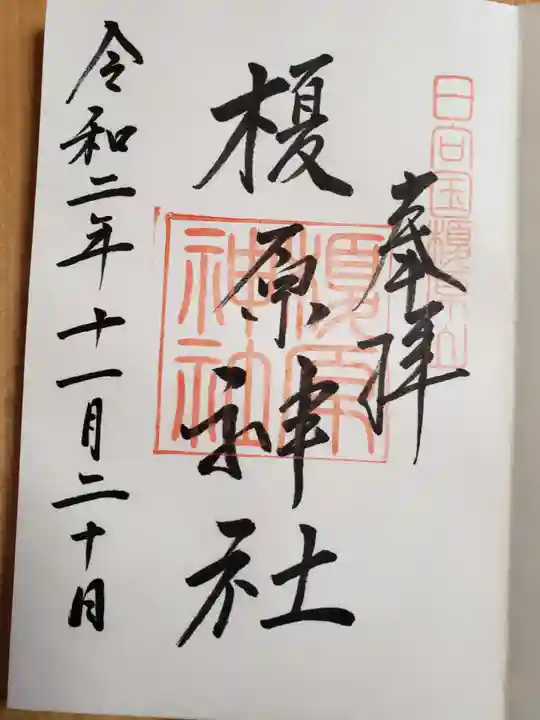 奉拝
日向国榎原山
榎原神社
榎原神社
令和二年十一月二十日